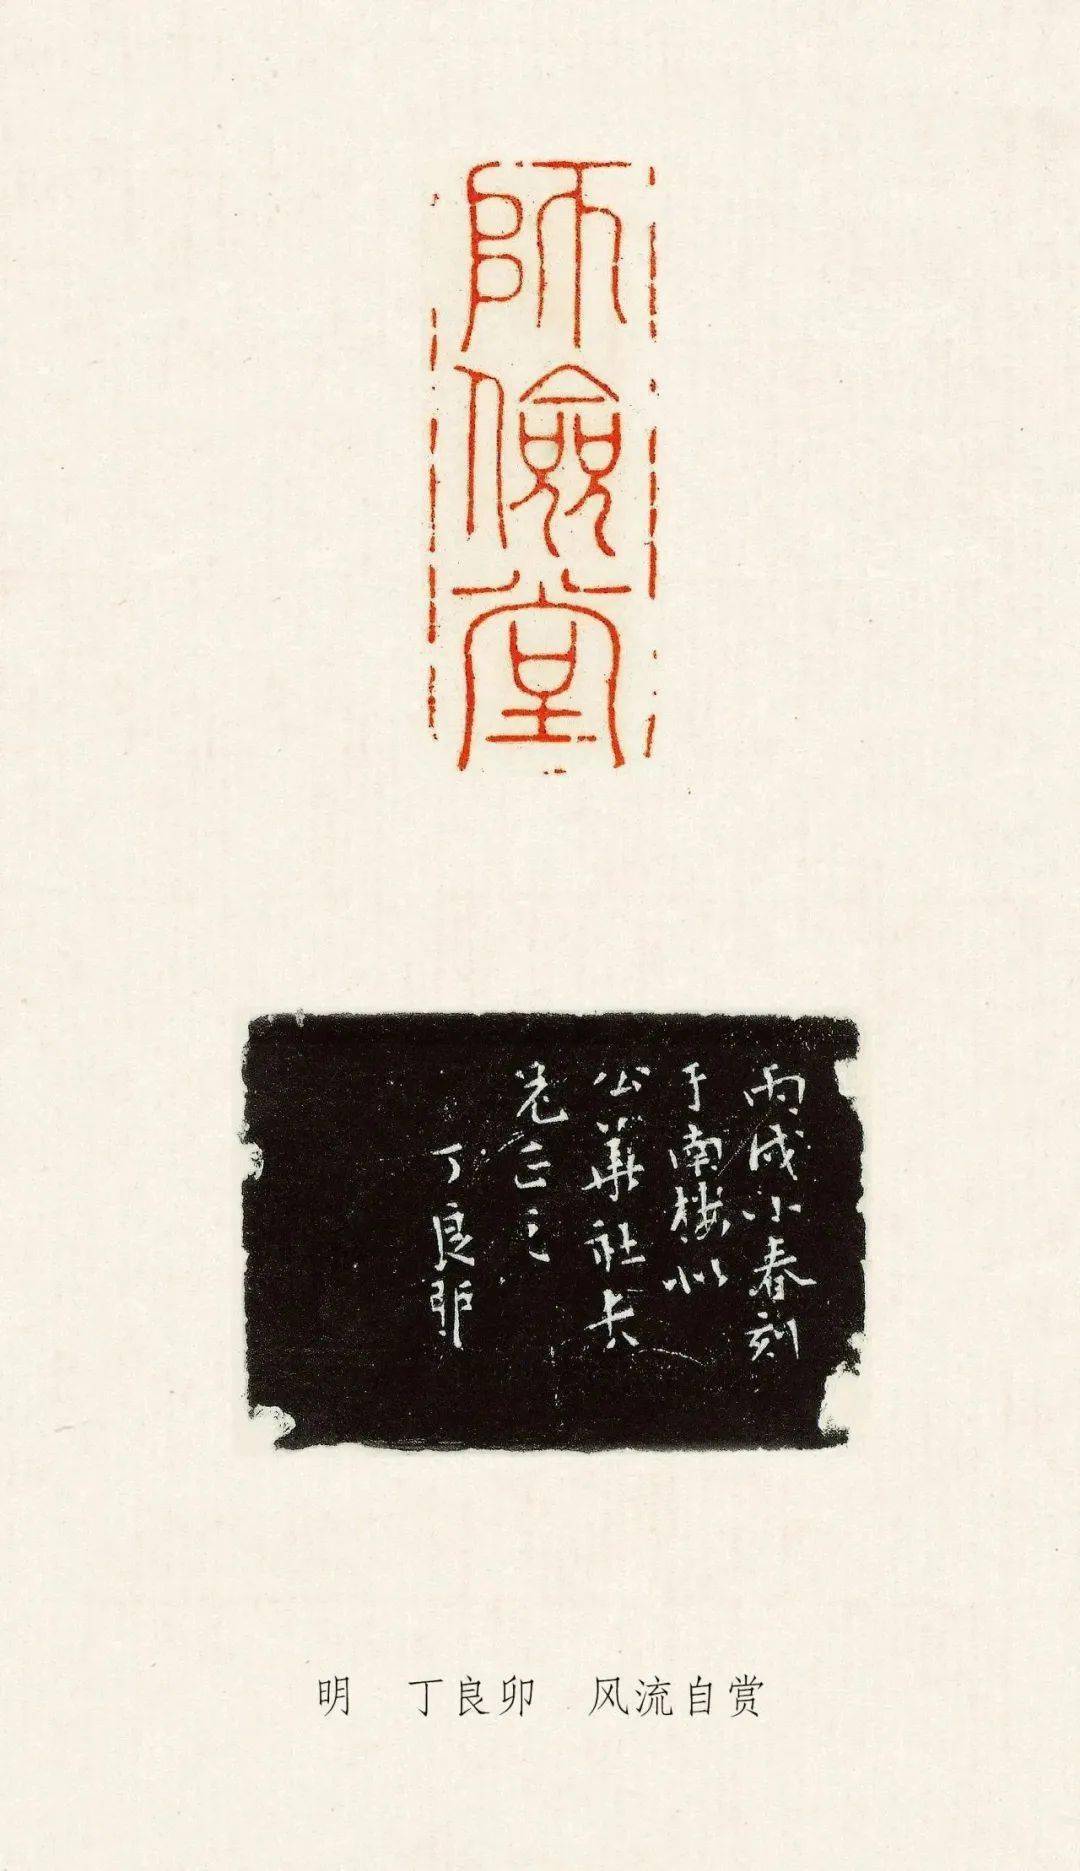 師儉堂
丙戌小春刻
于南樓似
公華社長
兄正之
丁良卯
明 丁良卯 风流自赏